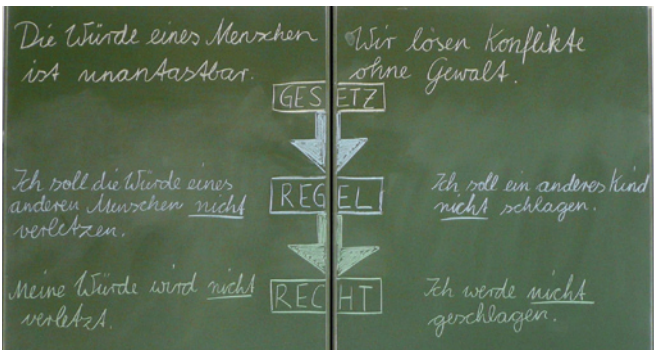 Die Würde eines Menschen
ist unantastbar.
Wir lösen Konflikte
ohne Gewalt.
GESETZ
Ich soll die Würde eines
anderen Menschen nicht
verletzen.
REGEL
Ich soll ein anderes Kind
nicht schlagen.
Meine Würde wird nicht
verletzt.
RECHT
Ich werde nicht
geschlagen.